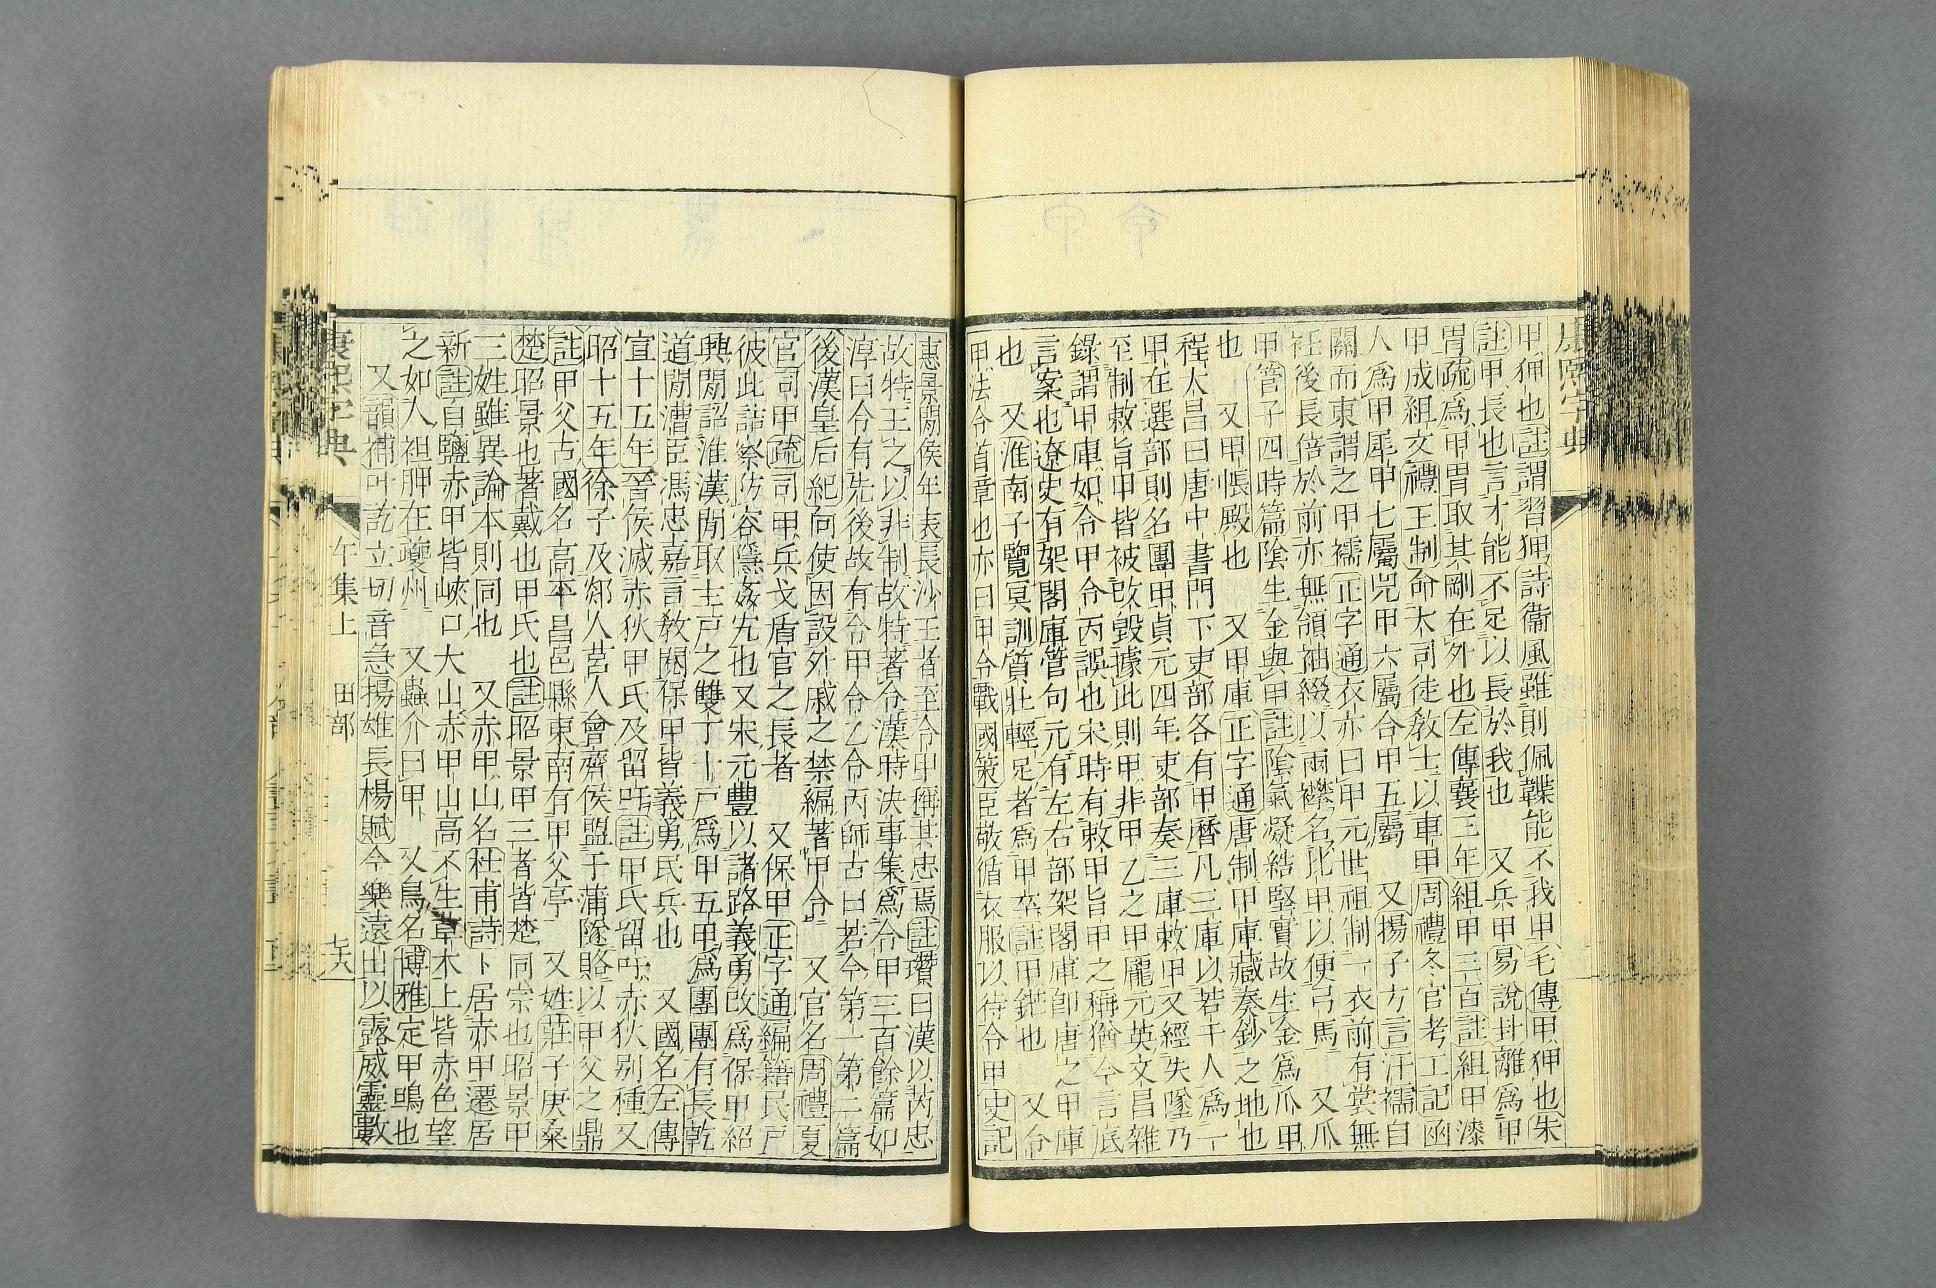 康熙字典
甲狎也註謂習狎詩衞風雖則佩韘能不我甲毛傳甲狎也朱
註甲長也言才能不足以長於我也 又兵甲易說卦離爲甲
冑疏爲甲冑取其剛在外也左傳襄三年組甲三百註組甲漆
甲成組文禮王制命大司徒敎士以車甲周禮冬官考工記函
人爲甲犀甲七屬兕甲六屬合甲五屬 又揚子方言汗襦自
關而東謂之甲襦正字通衣亦曰甲元世祖制一衣前有裳無
衽後長倍於前亦無領袖綴以兩襻名比甲以便弓馬 又爪
甲管子四時篇陰生金與甲註陰氣凝結堅實故生金爲爪甲
也 又甲帳殿也 又甲庫正字通唐制甲庫藏奏鈔之地也
程大昌曰唐中書門下吏部各有甲曆凡三庫以若干人爲一
甲在選部則名團甲貞元四年吏部奏三庫敕甲又經失墜乃
至制敕旨甲皆被改毀據此則甲非甲乙之甲龐元英文昌雜
錄謂甲庫如令甲令丙誤也宋時有敕甲旨甲之稱猶今言底
言案也遼史有架閣庫管句元有左右部架閣庫卽唐之甲庫
也 又淮南子覽冥訓質壯輕足者爲甲卒註甲鎧也 又令
甲法令首章也亦曰甲令戰國策臣敬循衣服以待令甲史記
惠景閒侯年表長沙王者至令甲稱其忠焉註瓚曰漢以芮忠
故特王之以非制故特著令漢時決事集爲令甲三百餘篇如
淳曰令有先後故有令甲令乙令丙師古曰若今第一第二篇
後漢皇后紀向使因設外戚之禁編著甲令 又官名周禮夏
官司甲疏司甲兵戈盾官之長者 又保甲正字通編籍民戸
彼此詰察防容隱姦宄也又宋元豐以諸路義勇改爲保甲紹
興閒詔淮漢閒取主戸之雙丁十戸爲甲五甲爲團團有長乾
道閒漕臣馮忠嘉言敎閱保甲皆義勇民兵也 又國名左傳
宣十五年晉侯滅赤狄甲氏及留吁註甲氏留吁赤狄別種又
昭十五年徐子及郯人莒人會齊侯盟于蒲隧賂以甲父之鼎
註甲父古國名高平昌邑縣東南有甲父亭 又姓莊子庚桑
楚昭景也著戴也甲氏也註昭景甲三者皆楚同宗也昭景甲
三姓雖異論本則同也 又赤甲山名杜甫詩卜居赤甲遷居
新註自鹽赤甲皆峽口大山赤甲山高不生草木上皆赤色望
之如人袒胛在夔州 又蟲介曰甲 又鳥名博雅定甲鴠也
又韻補叶訖立切音急揚雄長楊賦今樂遠出以露威靈數
康熙字典 午集上 田部 七六